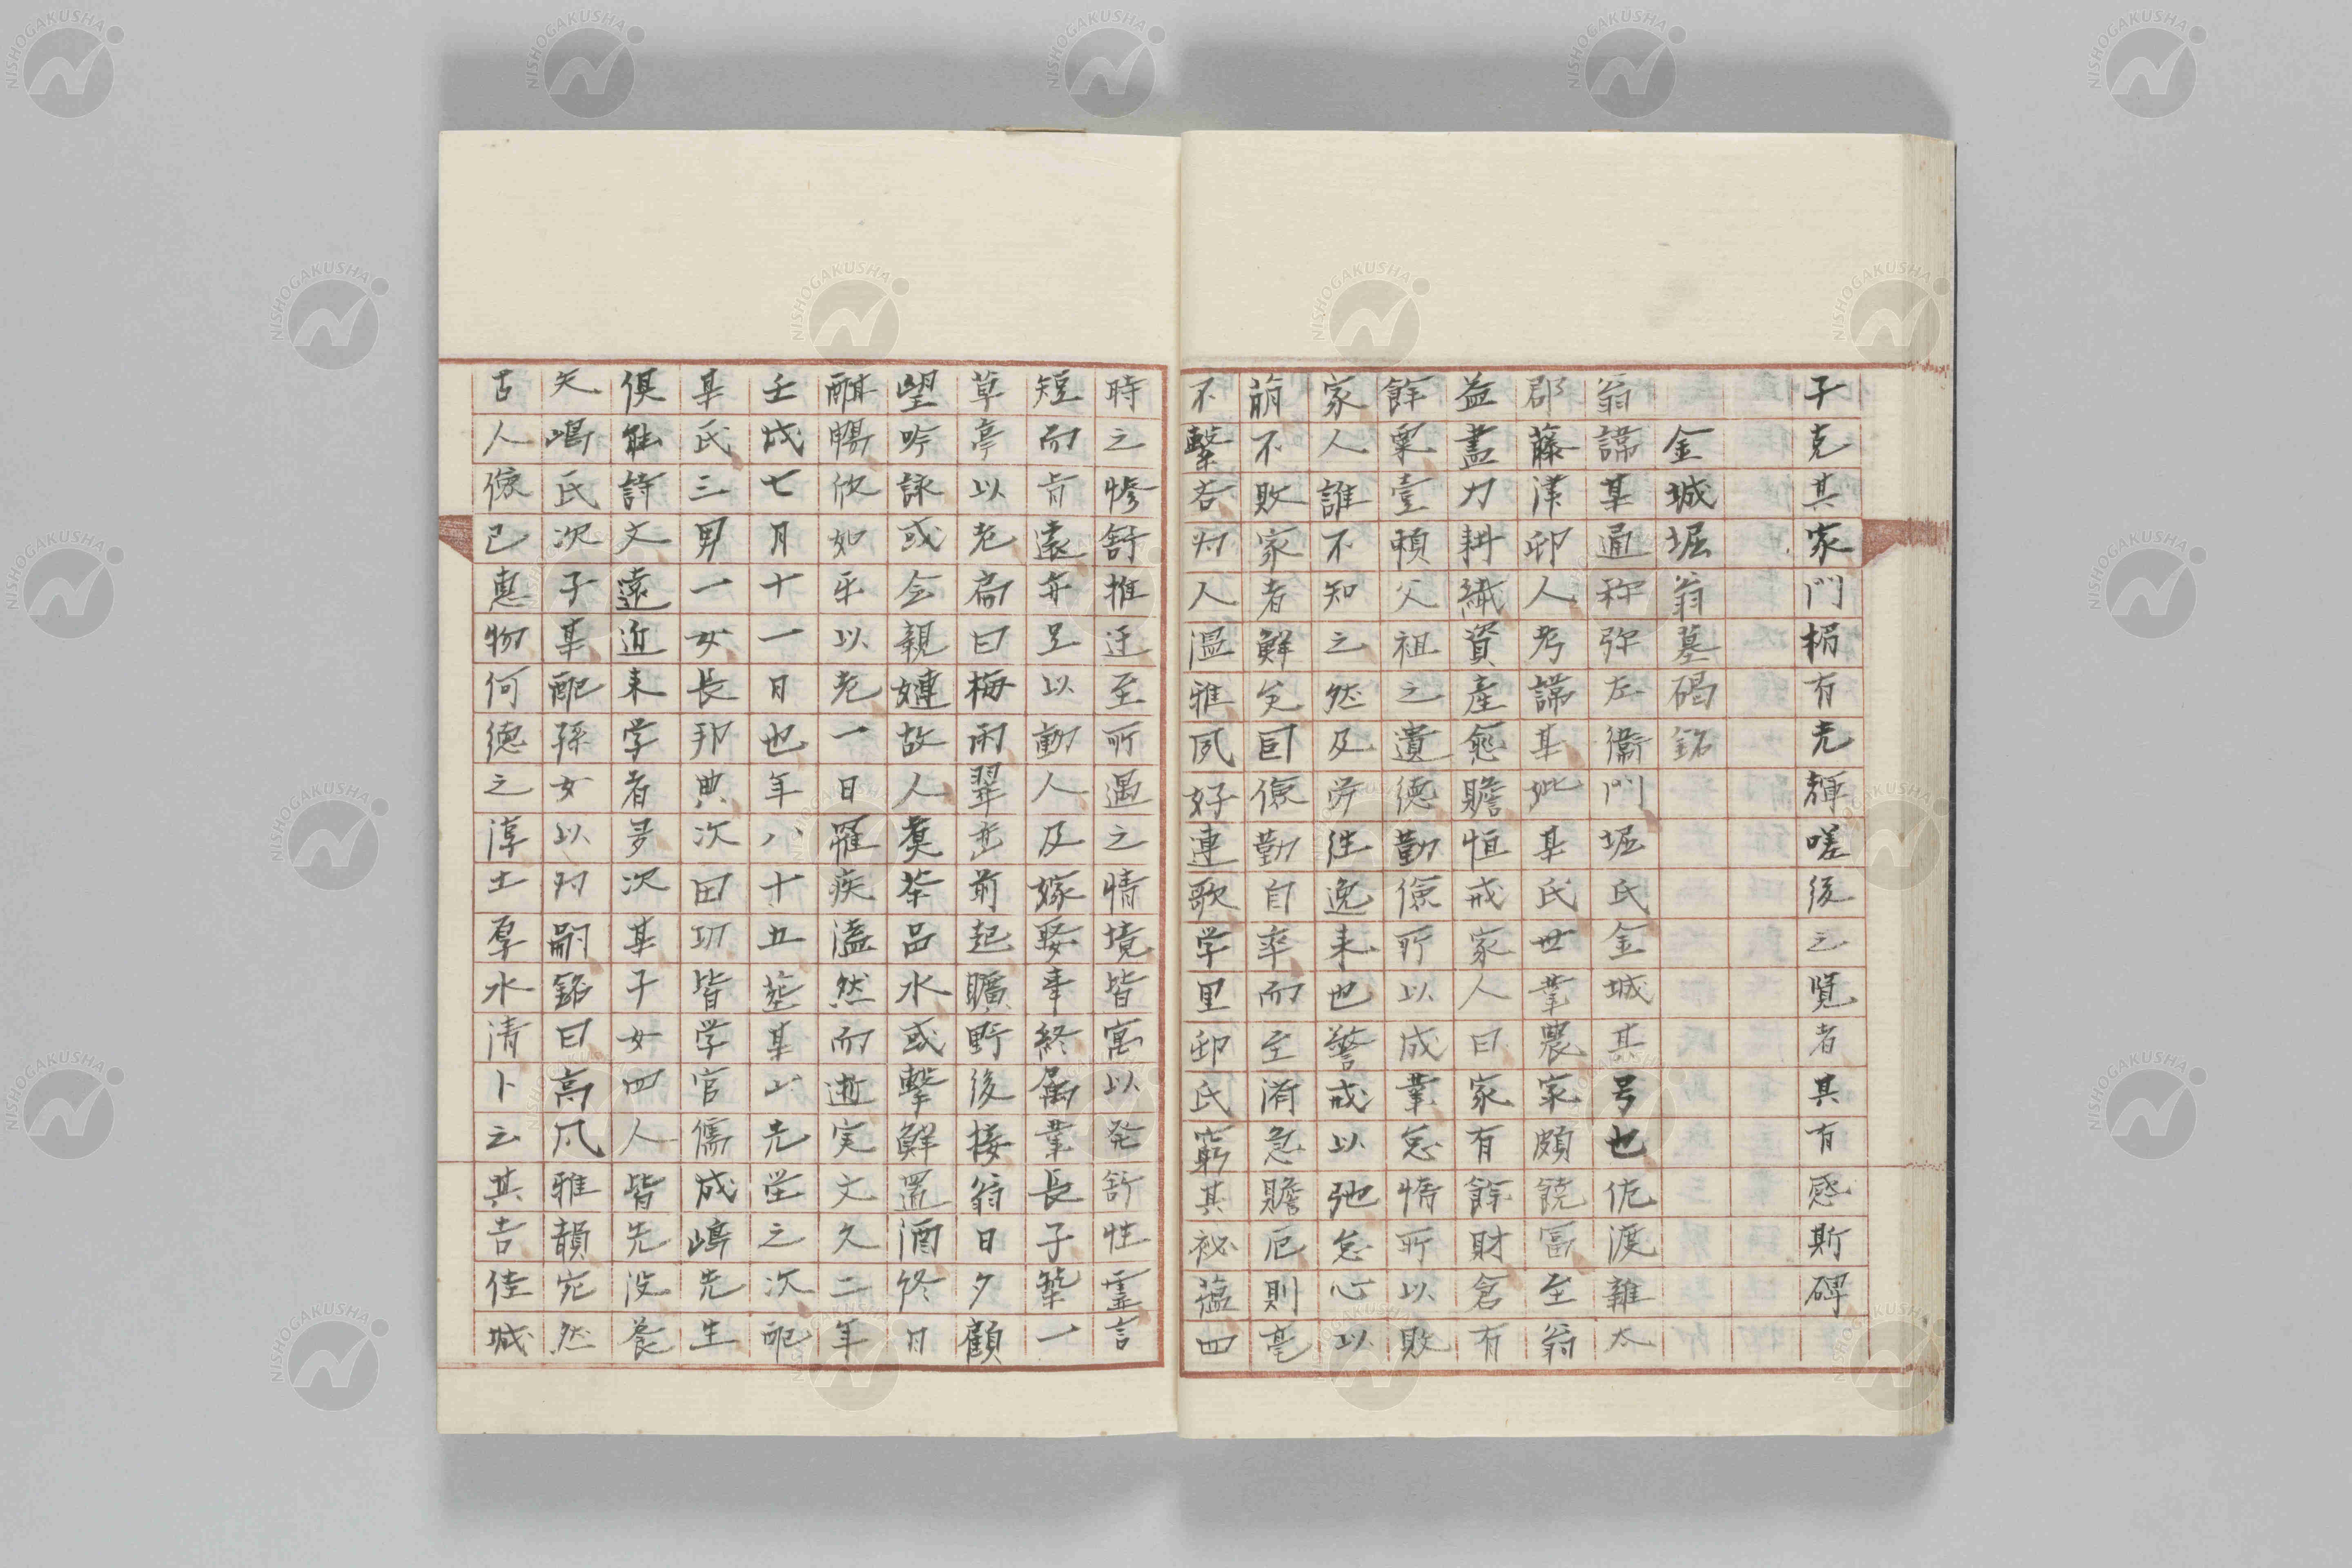 子克其家門楣有光輝嗟後之覧者其有感斯碑
金城堀翁墓碣銘
翁諱某通称弥左衞門堀氏金城其号也佐渡雑太
郡藤津邨人考諱某妣某氏世業農家頗饒冨至翁
益盡力耕織資産愈贍恒戒家人曰家有餘財倉有
餘粟壹頼父祖之遺徳勤倹所以成業怠惰所以敗
家人誰不知之然及労徃逸来也警戒以弛怠心以
萠不敗家者鮮矣因倹勤自率而至済急贍厄則毫
不繫吝為人温雅夙好連歌学里邨氏窮其祕蘊四
時之惨舒推迁至所遇之情境皆寓以発舒性霊言
短而旨遠弃足以動人及嫁娶事終属業長子築一
草亭以老扁曰梅雨翠峦前起曠野後接翁日夕顧
望吟詠或会親嫥故人煑茶品水或撃鮮置酒終日
酣暢欣如乐以老一日罹疾溘然而逝実文久二年
壬戌七月十一日也年八十五葬某山先塋之次配
某氏三男一女長邦典次田功皆学官儒成嶋先生
俱能詩文遠近来学者多次某子女四人皆先没養
矢嶋氏次子某配孫女以為嗣銘曰高风雅韻宛然
古人倹已恵物何徳之淳土厚水清卜云其吉佳城